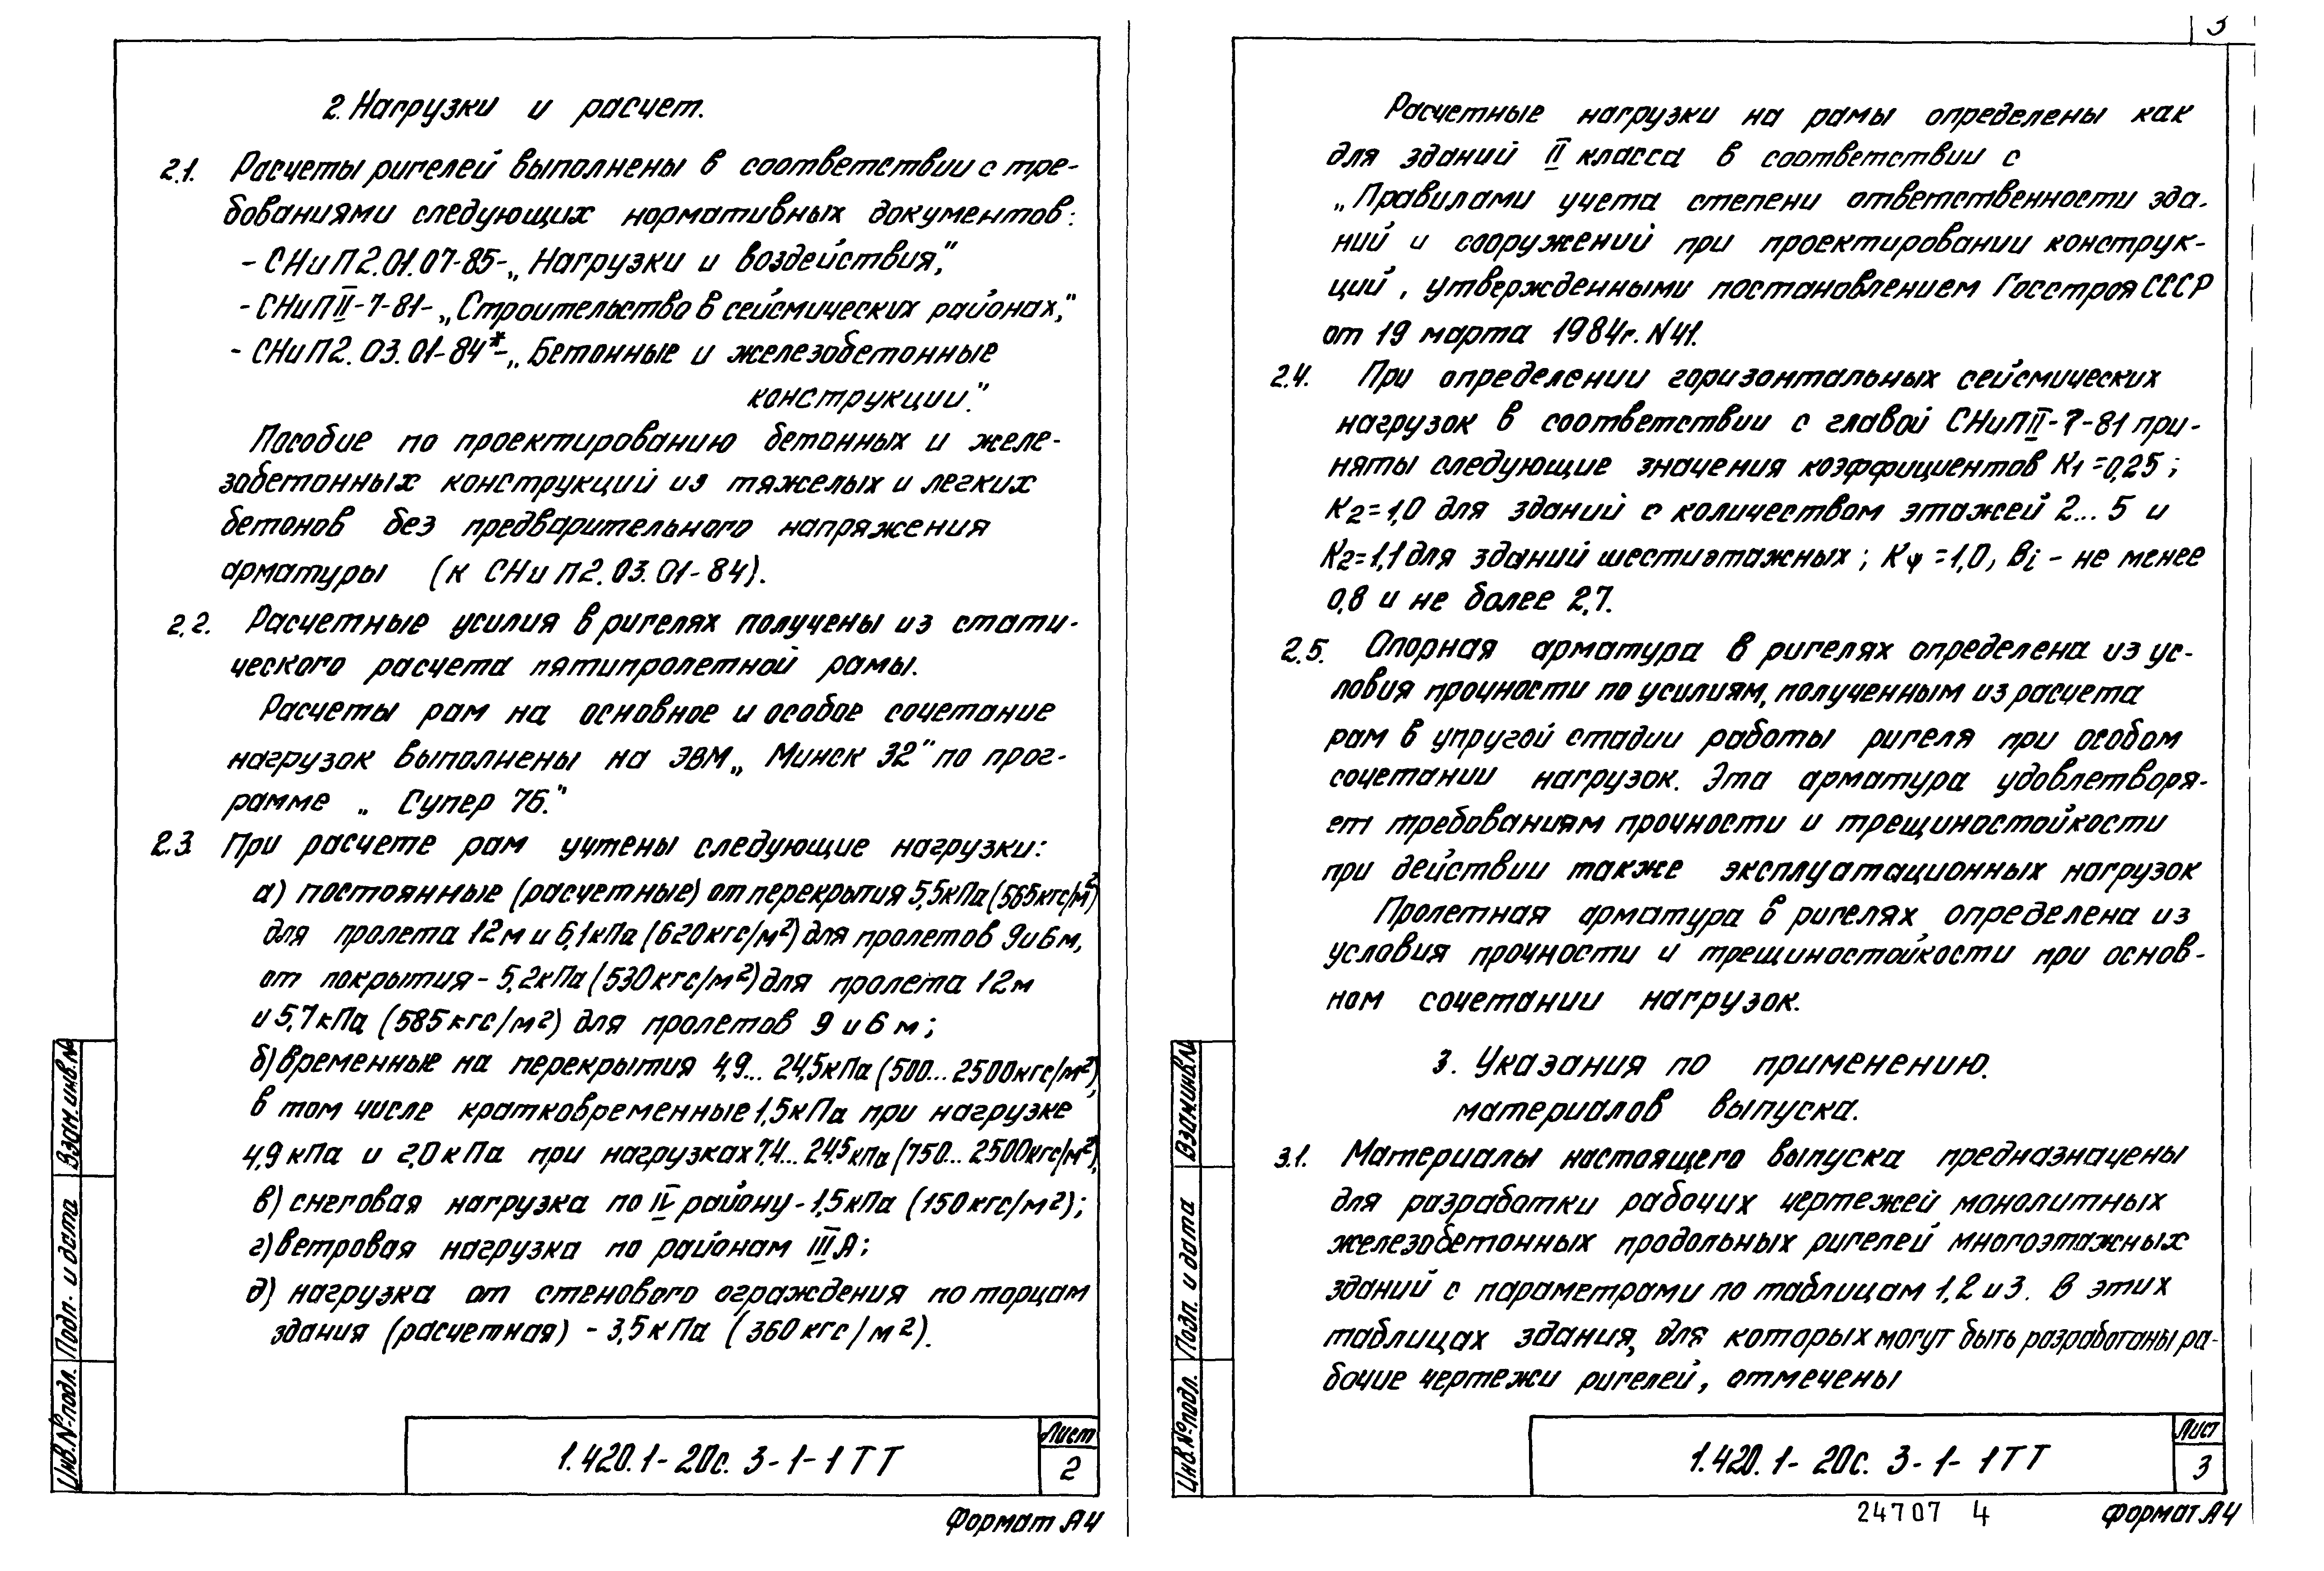 2. Нагрузки и расчет.
2.1. Расчеты ригелей выполнены в соответствии с тре-
бованиями следующих нормативных документов:
- СНиП 2.01.07-85-„Нагрузки и воздействия",
- СНиП II-7-81-„Строительство в сейсмических районах",
- СНиП 2.03.01-84*-„Бетонные и железобетонные
конструкции."
Пособие по проектированию бетонных и желе-
зобетонных конструкций из тяжелых и легких
бетонов без предварительного напряжения
арматуры (к СНиП 2.03.01-84).
2.2. Расчетные усилия в ригелях получены из стати-
ческого расчета пятипролетной рамы.
Расчеты рам на основное и особое сочетание
нагрузок выполнены на ЭВМ „Минск 32" по прог-
рамме „Супер 76."
2.3. При расчете рам учтены следующие нагрузки:
а) постоянные (расчетные) от перекрытия 5,5кПа (565кгс/м²)
для пролета 12м и 6,1кПа (620кгс/м²) для пролетов 9 и 6м,
от покрытия - 5,2кПа (530кгс/м²) для пролета 12м
и 5,7кПа (585кгс/м²) для пролетов 9 и 6 м;
б) временные на перекрытия 4,9... 24,5кПа (500... 2500кгс/м²),
в том числе кратковременные 1,5кПа при нагрузке
4,9 кПа и 2,0 кПа при нагрузках 7,4... 24,5 кПа (750... 2500кгс/м²),
в) снеговая нагрузка по IV району - 1,5кПа (150кгс/м²);
г) ветровая нагрузка по районам III А;
д) нагрузка от стенового ограждения по торцам
здания (расчетная) - 3,5кПа (360кгс/м²).
Взам.инв.№
Подп. и дата
Инв.№ подл.
1.420.1-20с. 3-1-1ТТ
Лист
2
Формат А4
3
Расчетные нагрузки на рамы определены как
для зданий II класса в соответствии с
„Правилами учета степени ответственности зда-
ний и сооружений при проектировании конструк-
ций, утвержденными постановлением Госстроя СССР
от 19 марта 1984г. N41.
2.4. При определении горизонтальных сейсмических
нагрузок в соответствии с главой СНиП II-7-81 при-
няты следующие значения коэффициентов К1=0,25;
К2=1,0 для зданий с количеством этажей 2... 5 и
К2=1,1 для зданий шестиэтажных; Кψ=1,0, Вi - не менее
0,8 и не более 2,7.
2.5. Опорная арматура в ригелях определена из ус-
ловия прочности по усилиям, полученным из расчета
рам в упругой стадии работы ригеля при особом
сочетании нагрузок. Эта арматура удовлетворя-
ет требованиям прочности и трещиностойкости
при действии также эксплуатационных нагрузок
Пролетная арматура в ригелях определена из
условия прочности и трещиностойкости при основ-
ном сочетании нагрузок.
3. Указания по применению.
материалов выпуска.
3.1. Материалы настоящего выпуска предназначены
для разработки рабочих чертежей монолитных
железобетонных продольных ригелей многоэтажных
зданий с параметрами по таблицам 1,2 и 3. В этих
таблицах здания, для которых могут быть разработаны ра-
бочие чертежи ригелей, отмечены
Взам.инв.№
Подп. и дата
Инв.№ подл.
1.420.1-20с. 3-1-1ТТ
Лист
3
24707 4
Формат А4